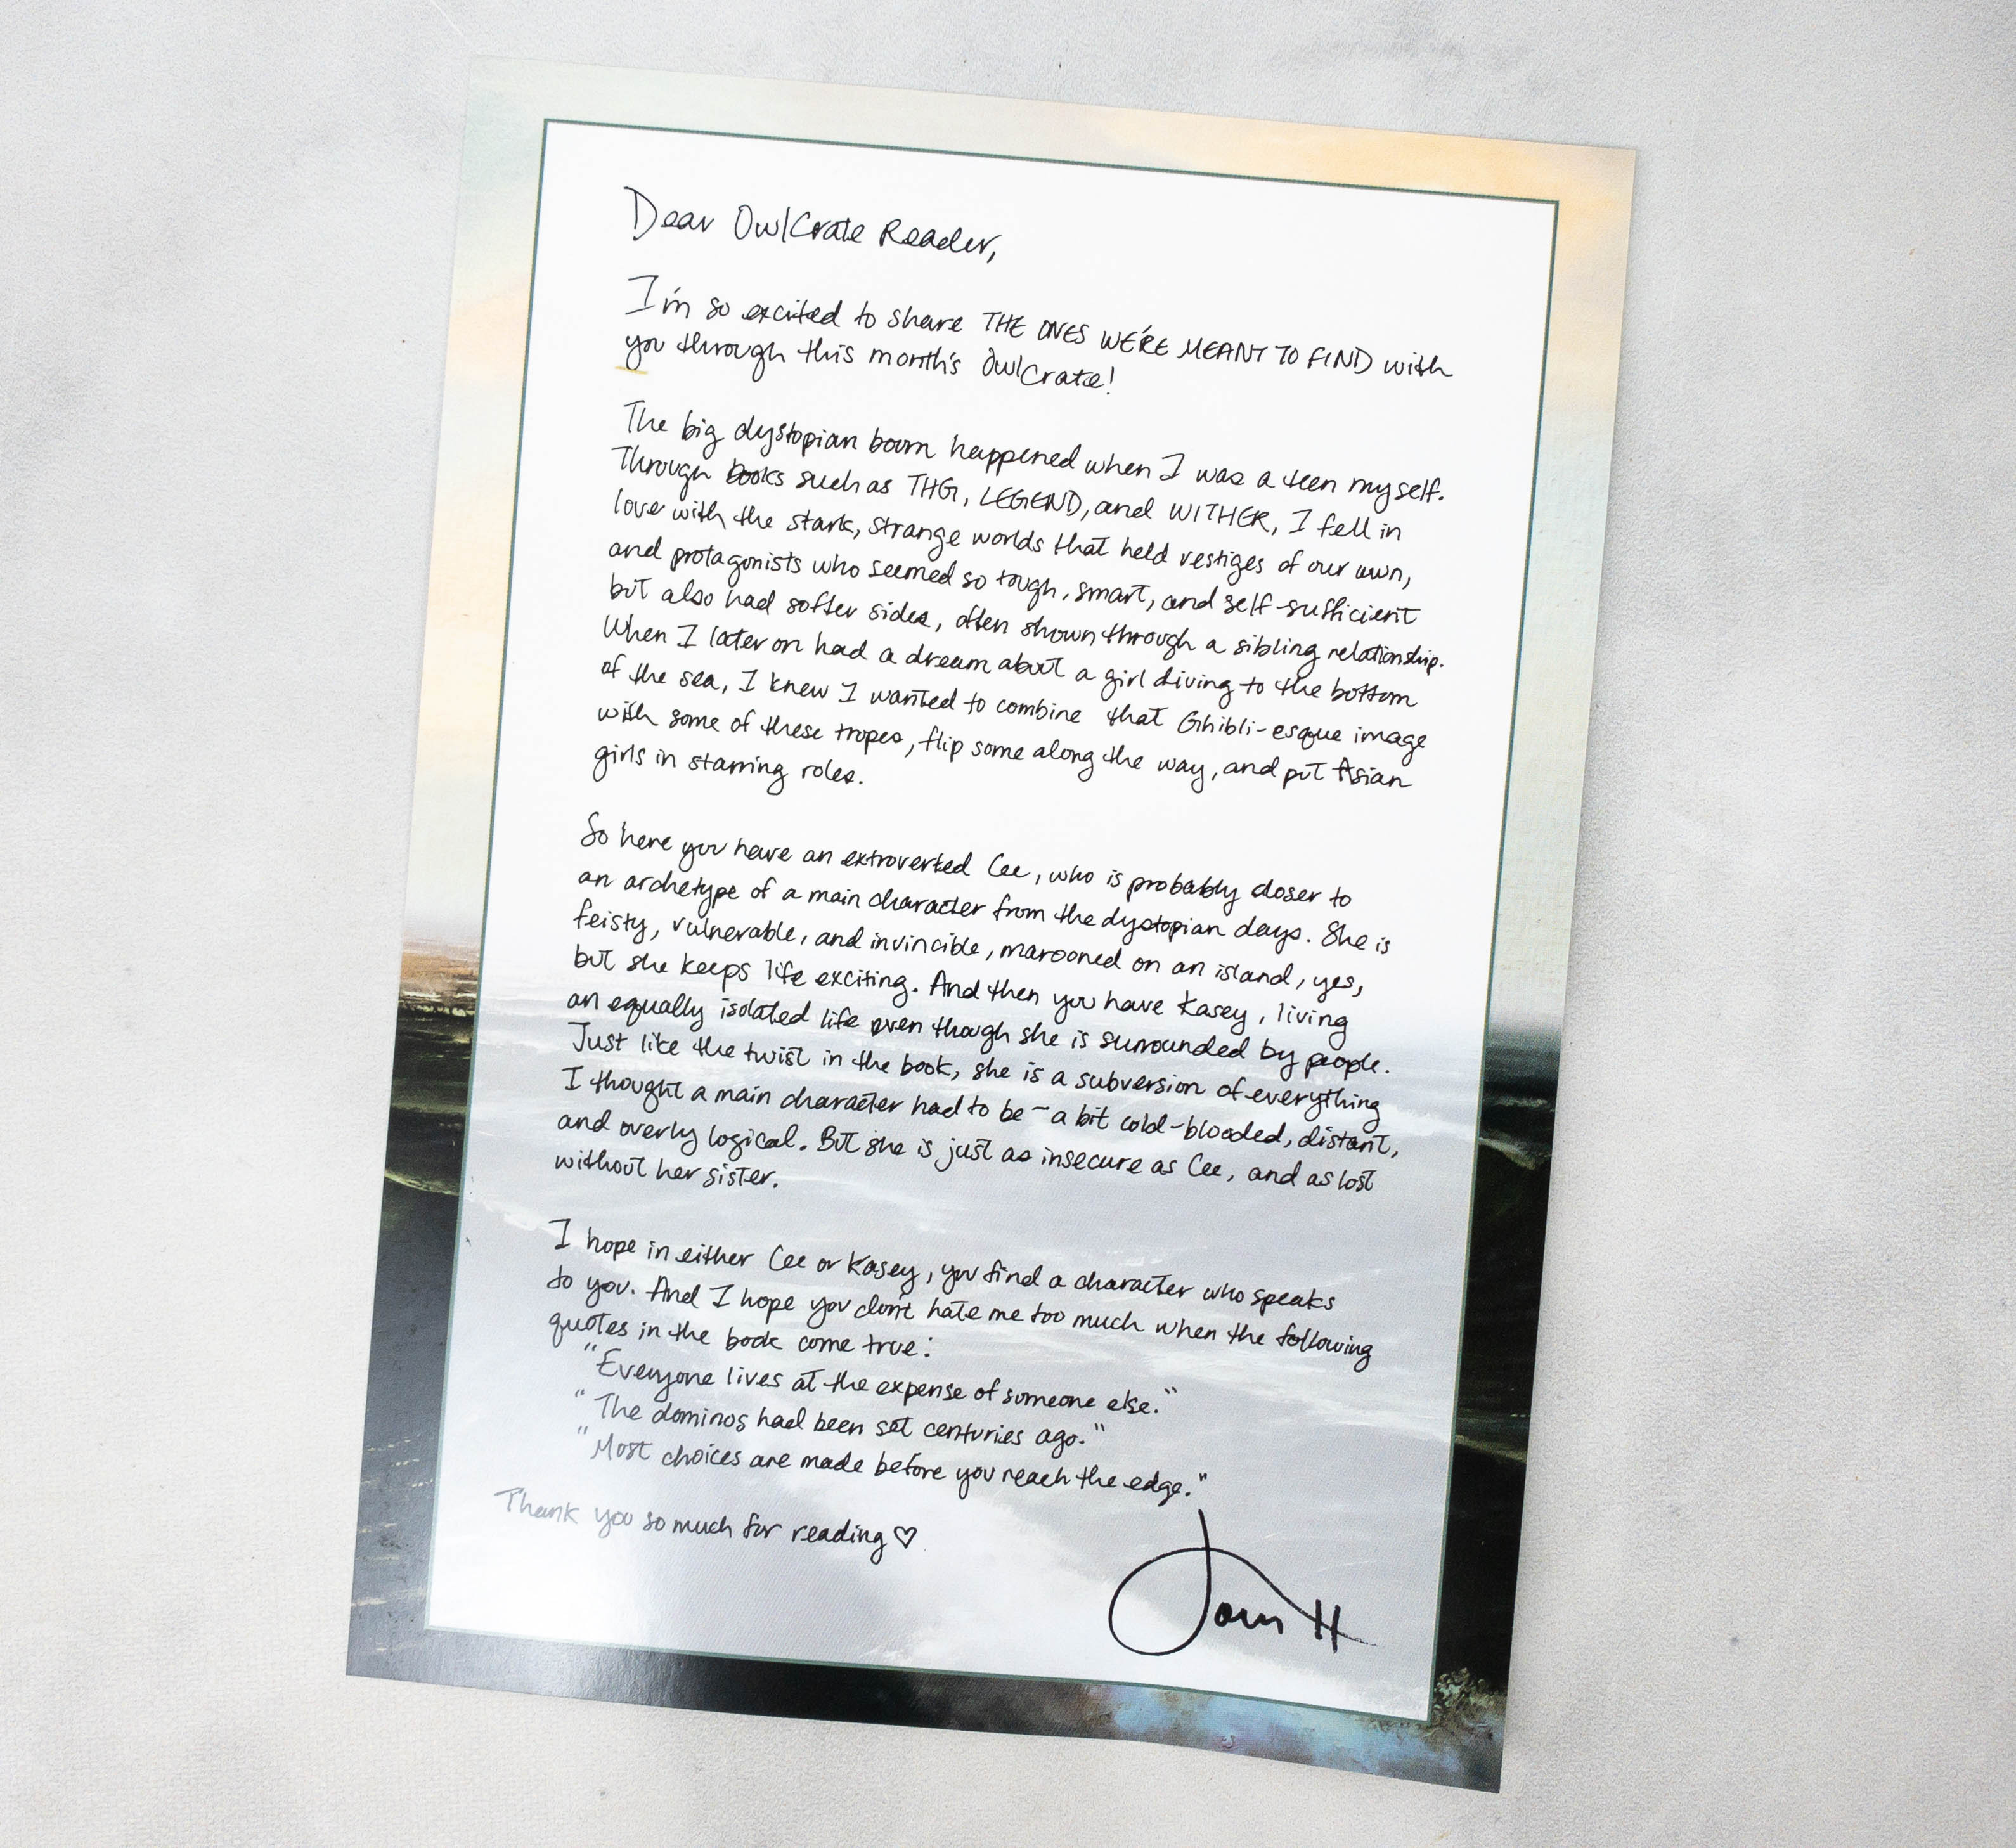 Dear OwlCrate Reader,
I'm so excited to share THE ONES WE'RE MEANT TO FIND with
you through this month's OwlCrate!
The big dystopian boom happened when I was a teen myself.
Through books such as THG, LEGEND, and WITHER, I fell in
love with the stark, strange worlds that held vestiges of our own,
and protagonists who seemed so tough, smart, and self-sufficient
but also had softer sides, often shown through a sibling relationship.
When I later on had a dream about a girl diving to the bottom
of the sea, I knew I wanted to combine that Ghibli-esque image
with some of these tropes, flip some along the way, and put Asian
girls in starring roles.
So here you have an extroverted Cee, who is probably closer to
an archetype of a main character from the dystopian days. She is
feisty, vulnerable, and invincible, marooned on an island, yes,
but she keeps life exciting. And then you have Kasey, living
an equally isolated life even though she is surrounded by people.
Just like the twist in the book, she is a subversion of everything
I thought a main character had to be - a bit cold-blooded, distant,
and overly logical. But she is just as insecure as Cee, and as lost
without her sister.
I hope in either Cee or Kasey, you find a character who speaks
to you. And I hope you don't hate me too much when the following
quotes in the book come true:
"Everyone lives at the expense of someone else."
"The dominos had been set centuries ago."
"Most choices are made before you reach the edge."
Thank you so much for reading ♡
Joan H